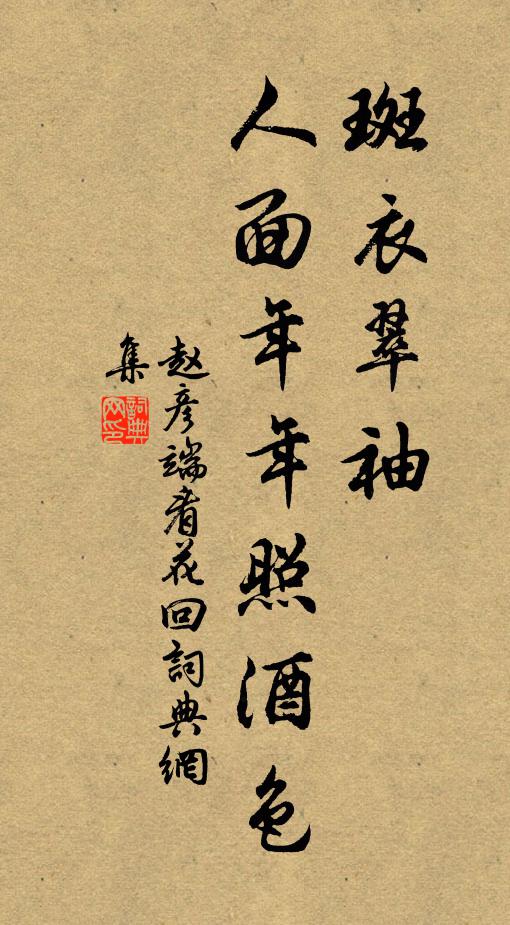 斑衣翠袖
人面年年照酒色
赵彦端看花回詞典網
集
詞典网印